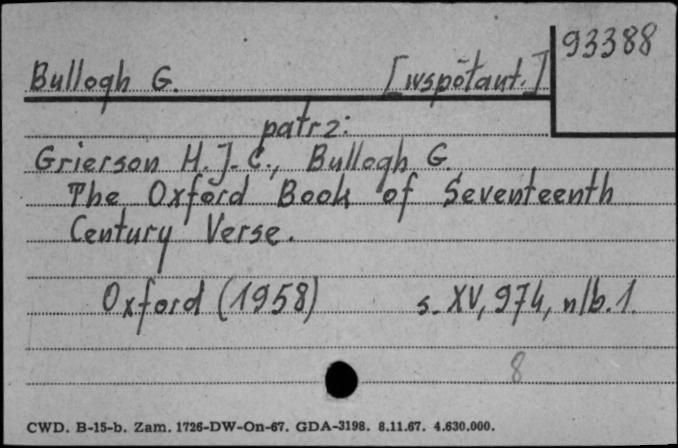 93388
Bullogh G. [współaut.]
patrz:
Grierson H. J. C., Bullogh G.
The Oxford Book of Seventeenth
Century Verse.
Oxford (1958) s. XV, 974, nlb. 1.
8
CWD. B-15-b. Zam. 1726-DW-On-67. GDA-3198. 8.11.67. 4.630.000.